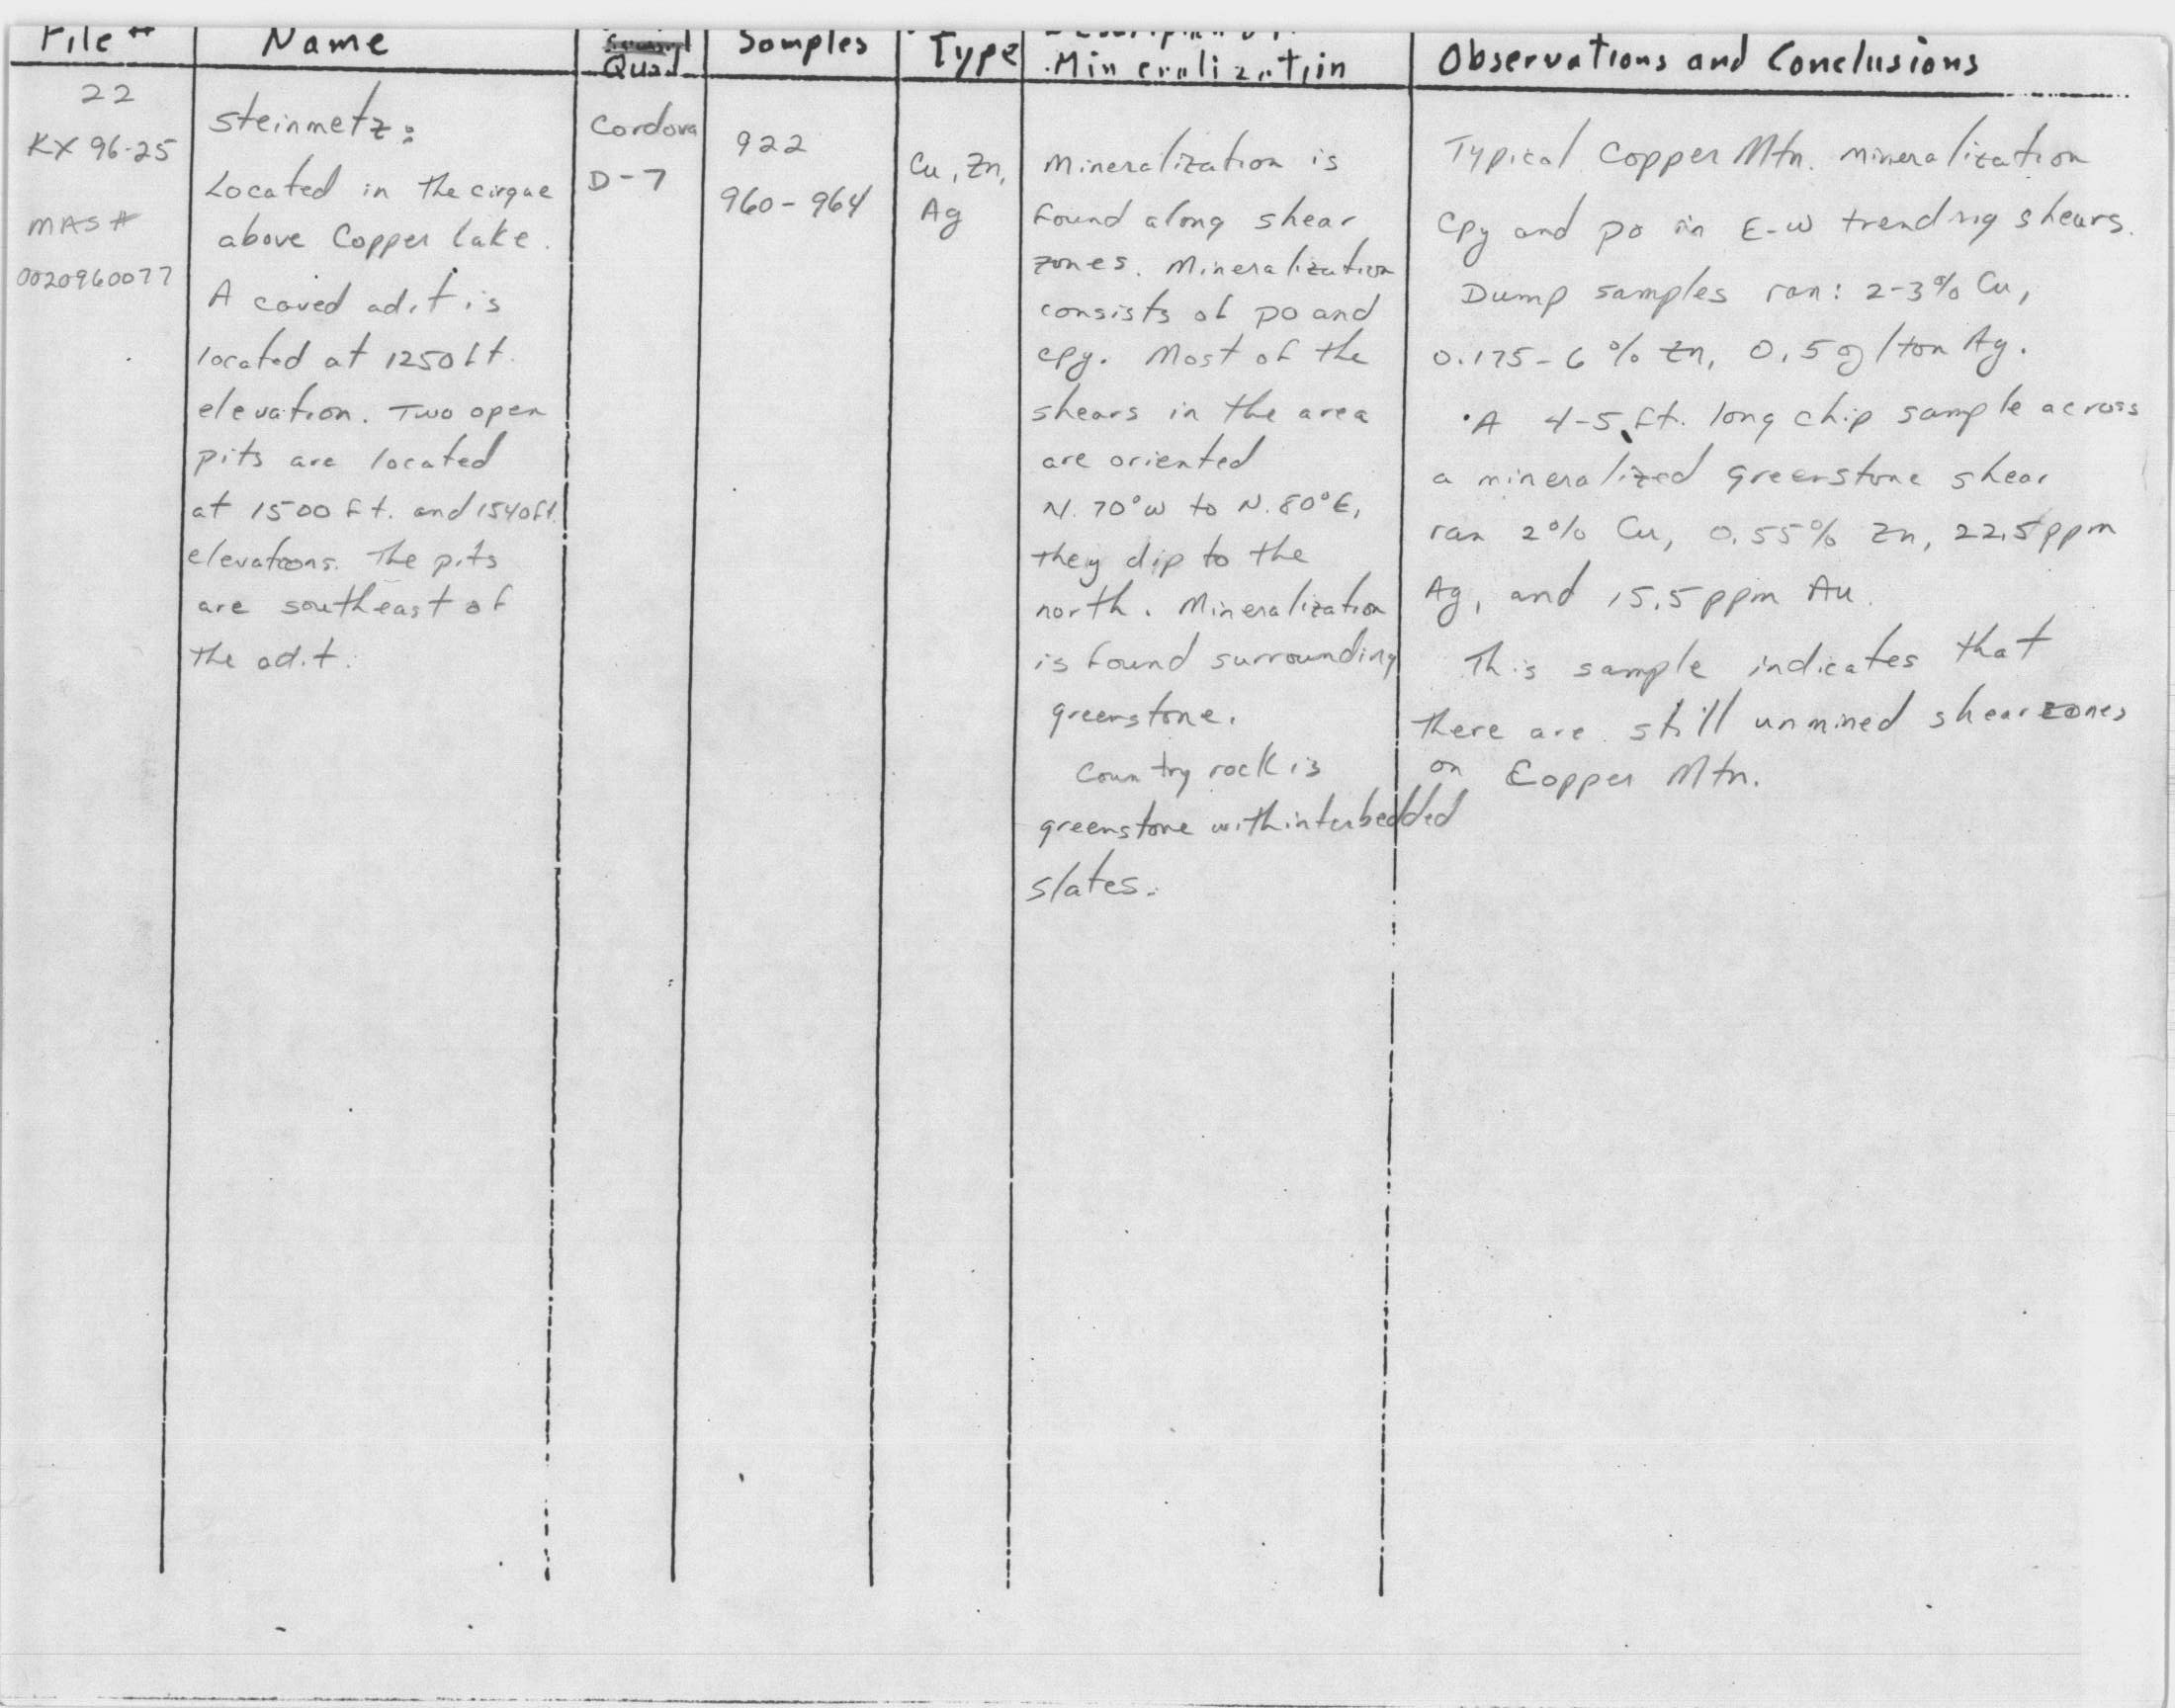 File #
Name
Quad
Samples
Type
Description of
Mineralization
Observations and Conclusions
22
KX 96-25
MAS #
0020960077
Steinmetz:
Located in the cirque
above Copper Lake.
A caved adit is
located at 1250 ft.
elevation. Two open
pits are located
at 1500 ft. and 1540 ft.
elevations. The pits
are southeast of
the adit.
Cordova
D-7
922
960-964
Cu, Zn,
Ag
Mineralization is
found along shear
zones. Mineralization
consists of po and
cpy. Most of the
shears in the area
are oriented
N. 70° W to N. 80° E,
they dip to the
north. Mineralization
is found surrounding
greenstone.
Country rock is
greenstone with interbedded
slates.
Typical Copper Mtn. mineralization
Cpy and po in E-W trending shears.
Dump samples ran: 2-3% Cu,
0.175-6% Zn, 0.5 oz/ton Ag.
• A 4-5 ft. long chip sample across
a mineralized greenstone shear
ran 2% Cu, 0.55% Zn, 22.5 ppm
Ag, and 15.5 ppm Au.
This sample indicates that
there are still unmined shear zones
on Copper Mtn.